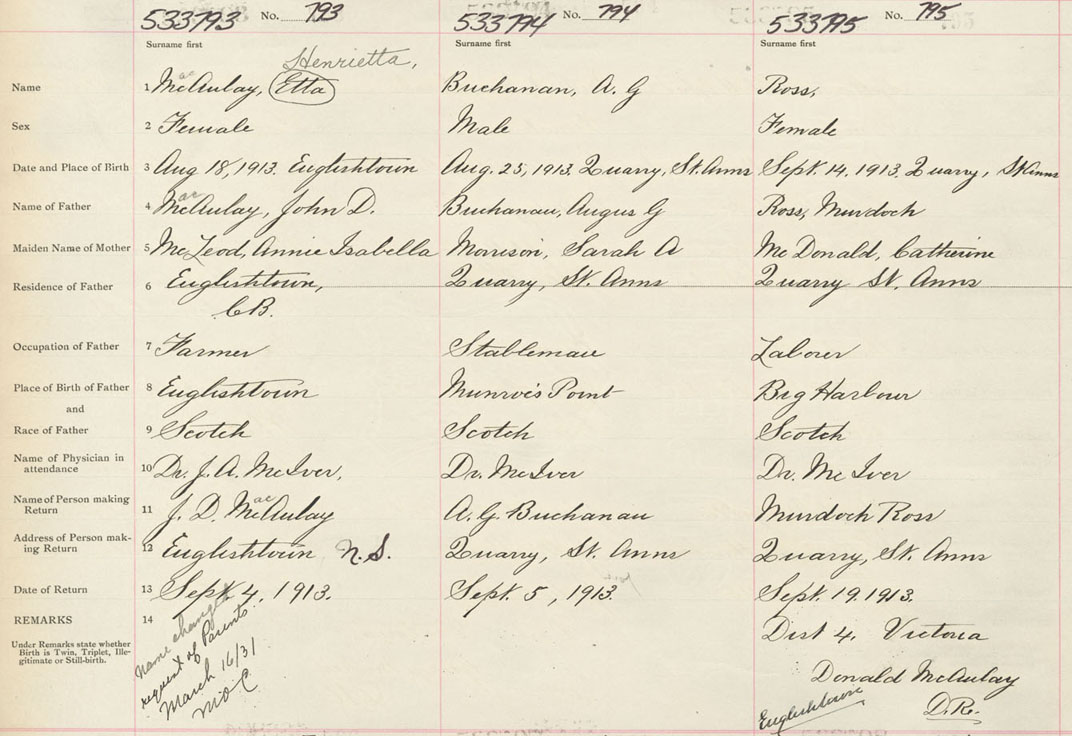 533793 No. 793 533794 No. 794 533795 No. 795
Surname first Surname first Surname first
Henrietta,
Name 1 McAulay, Etta Buchanan, A. G Ross,
ac
Sex 2 Female Male Female
Date and Place of Birth 3 Aug 18, 1913. Englishtown Aug. 25, 1913. Quarry, St. Anns Sept. 14. 1913. Quarry, St Anns
Name of Father 4 McAulay, John D. Buchanan, Angus G Ross, Murdoch
ac
Maiden Name of Mother 5 McLeod, Annie Isabella Morrison, Sarah A McDonald, Catherine
Residence of Father 6 Englishtown, Quarry, St. Anns Quarry St. Anns
C.B.
Occupation of Father 7 Farmer Stableman Labour
Place of Birth of Father 8 Englishtown Munroe's Point Big Harbour
and
Race of Father 9 Scotch Scotch Scotch
Name of Physician in
attendance 10 Dr. J. A. McIver, Dr. McIver Dr. McIver
Name of Person making
Return 11 J. D. McAulay A. G. Buchanan Murdoch Ross
ac
Address of Person mak-
ing Return 12 Englishtown N.S. Quarry, St. Anns Quarry, St. Anns
Date of Return 13 Sept. 4, 1913. Sept. 5, 1913 Sept. 19. 1913.
REMARKS 14
Under Remarks state whether
Birth is Twin, Triplet, Ille-
gitimate or Still-birth.
Name changed
request of Parents
March 16/31
Dist 4, Victoria
Donald McAulay
Englishtown D.R.